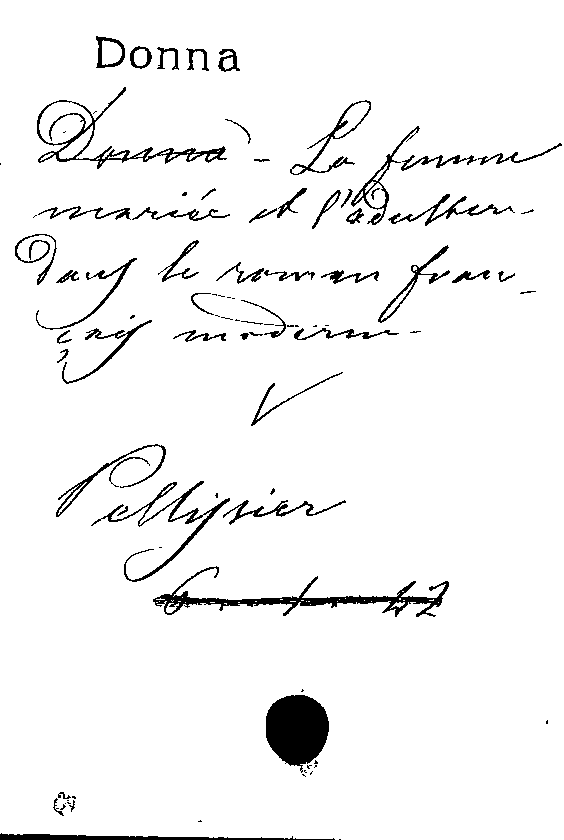 Donna
Donna - La femme
mariée et l'adultère
dans le roman fran-
çais moderne
V
Pellissier
6. 1. 42